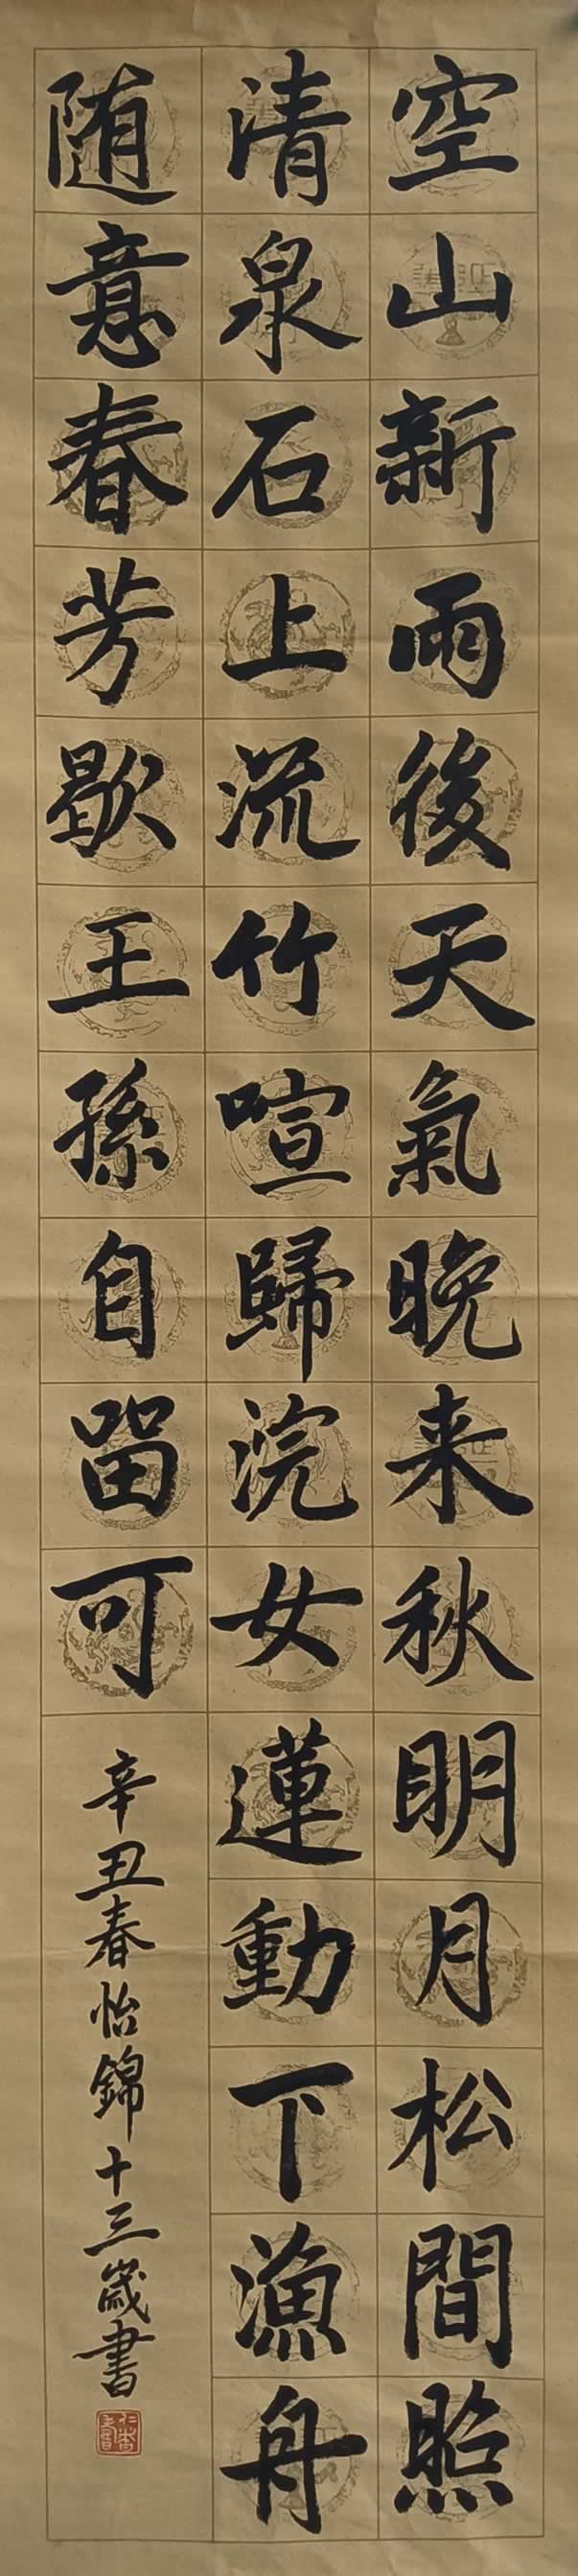 空山新雨後天氣晚来秋明月松間照
清泉石上流竹喧歸浣女蓮動下漁舟
随意春芳歇王孫自留可
辛丑春怡錦十三歲書